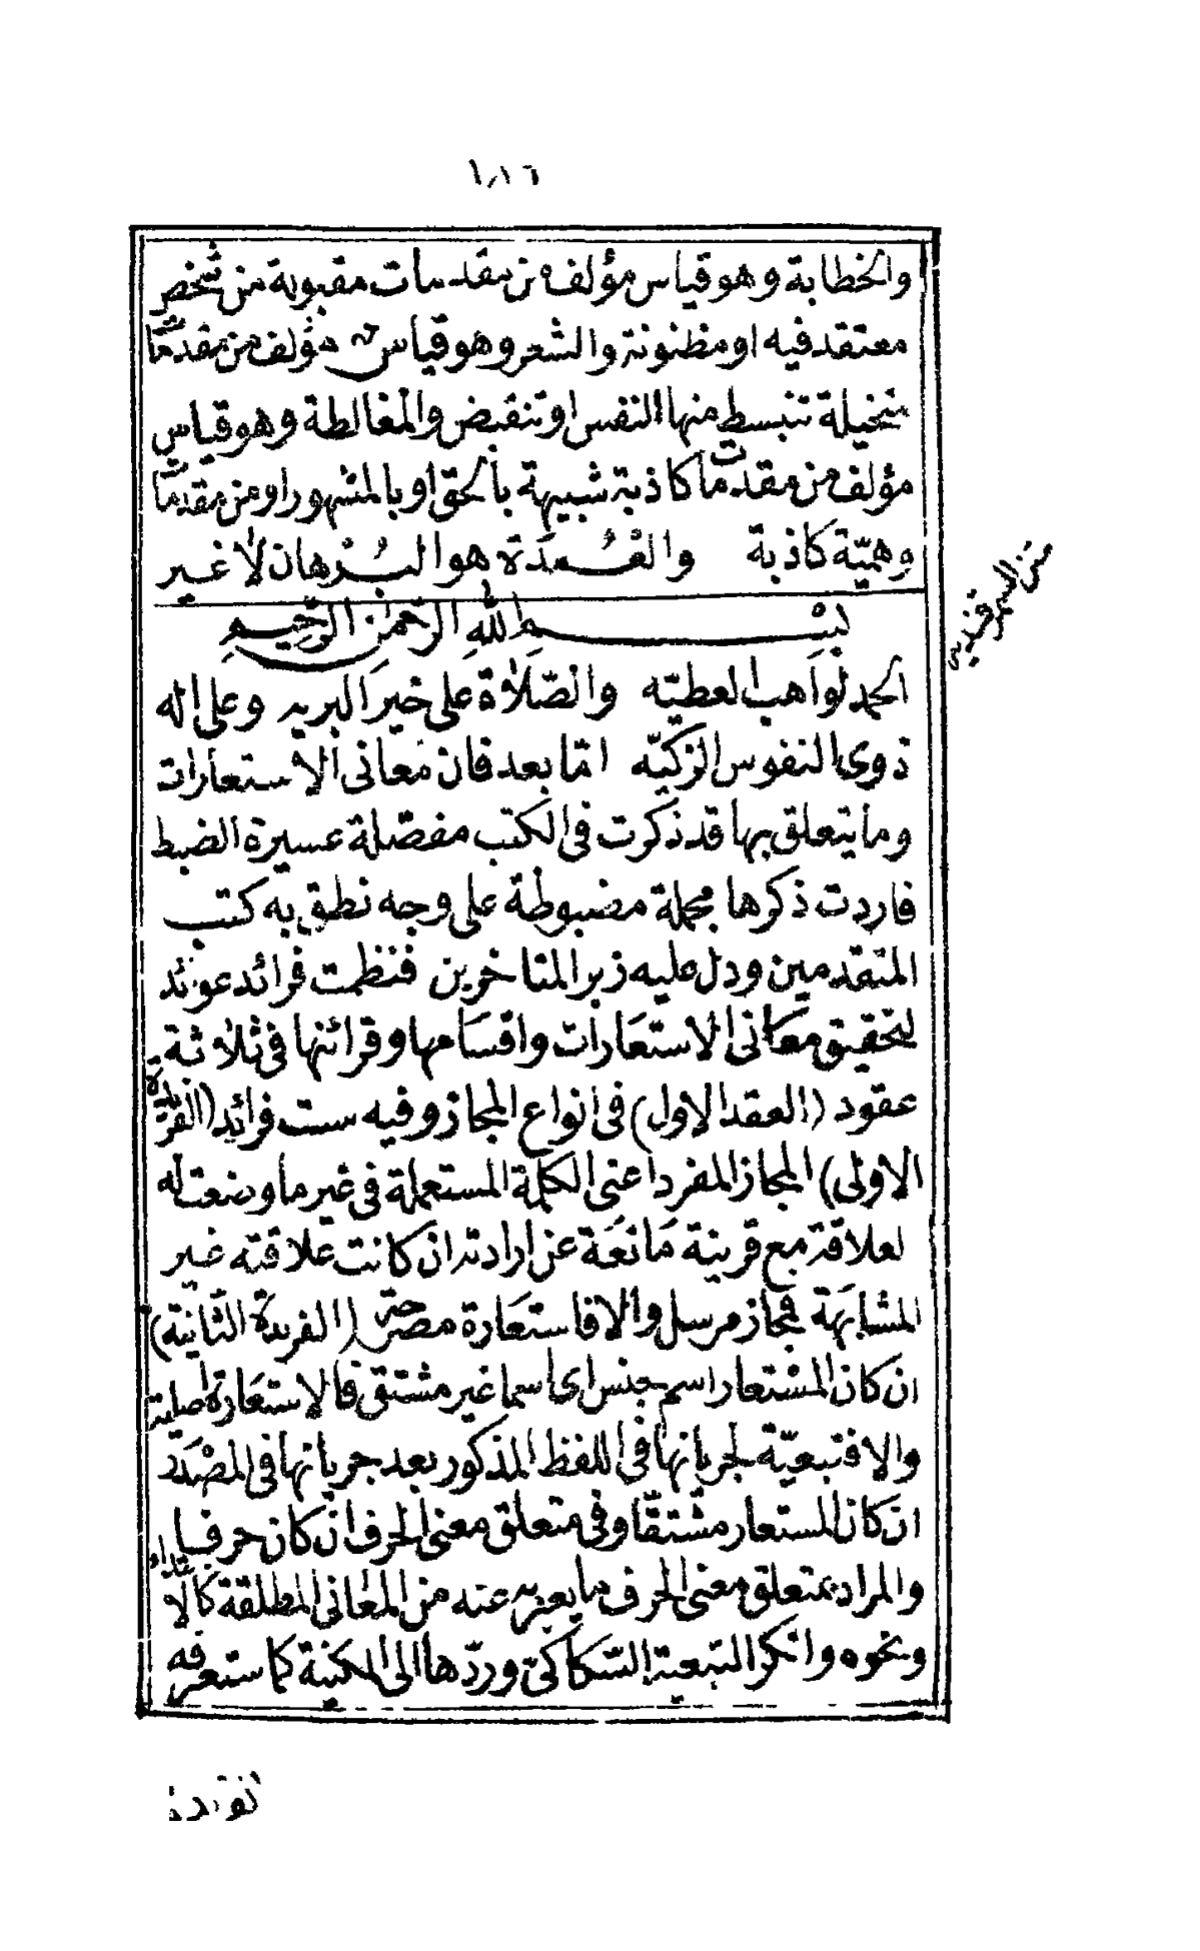 ١٨٦
والخطابة وهو قياس مؤلف من مقدمات مقبولة من شخص
معتقد فيه او مظنونة والشعر وهو قياس مؤلف من مقدمات
متخيلة تنبسط منها النفس او تنقبض والمغالطة وهو قياس
مؤلف من مقدمات كاذبة شبيهة بالحق او بالمشهور او من مقدمات
وهميّة كاذبة والعُمدَة هو البُرْهان لا غير
متن السمرقنديه
بِسْمِ اللهِ الرَّحْمٰنِ الرَّحِيمِ
الحمد لواهب العطيّه والصّلاة على خير البريه وعلى اله
ذوى النفوس الزكيّه امّا بعد فان معانى الاستعارات
وما يتعلق بها قد ذكرت فى الكتب مفصّلة عسيرة الضبط
فاردت ذكرها مجملة مضبوطة على وجه نطق به كتب
المتقدمين ودل عليه زبر المتاخرين فنظمت فرائد عوائد
لتحقيق معانى الاستعارات واقسامها وقرائنها فى ثلاثة
عقود (العقد الاول) فى انواع المجاز وفيه ست فرائد (الفريدة
الاولى) المجاز المفرد اعنى الكلمة المستعملة فى غير ما وضعت له
لعلاقة مع قرينة مانعة عن ارادته ان كانت علاقته غير
المشابهة فمجاز مرسل والا فاستعارة مصرحة (الفريدة الثانية)
ان كان المستعار اسم جنس اى اسما غير مشتق فالاستعارة اصلية
والا فتبعيّة لجريانها فى اللفظ المذكور بعد جريانها فى المصدر
ان كان المستعار مشتقّا وفى متعلق معنى الحرف ان كان حرفا
والمراد بمتعلق معنى الحرف ما يعبر به عنه من المعانى المطلقة كالابتداء
ونحوه وانكر التبعية السّكاكىّ وردّها الى المكنية كما ستعرفه
الفريدة